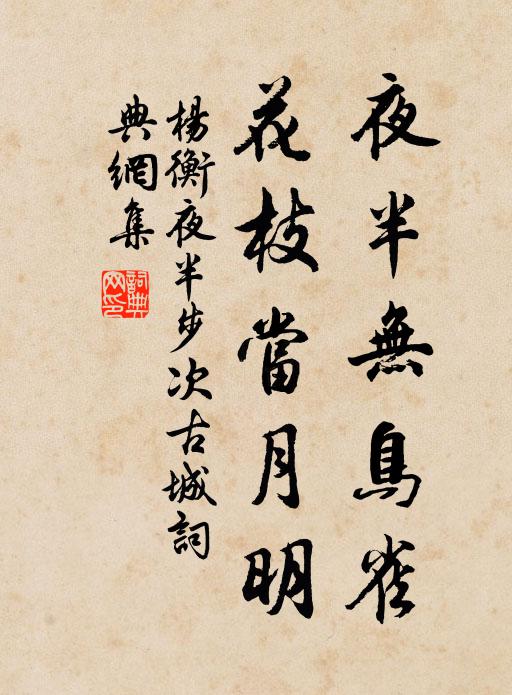 夜半無鳥雀
花枝當月明
楊衡夜半步次古城詞
典網集
詞典
网印